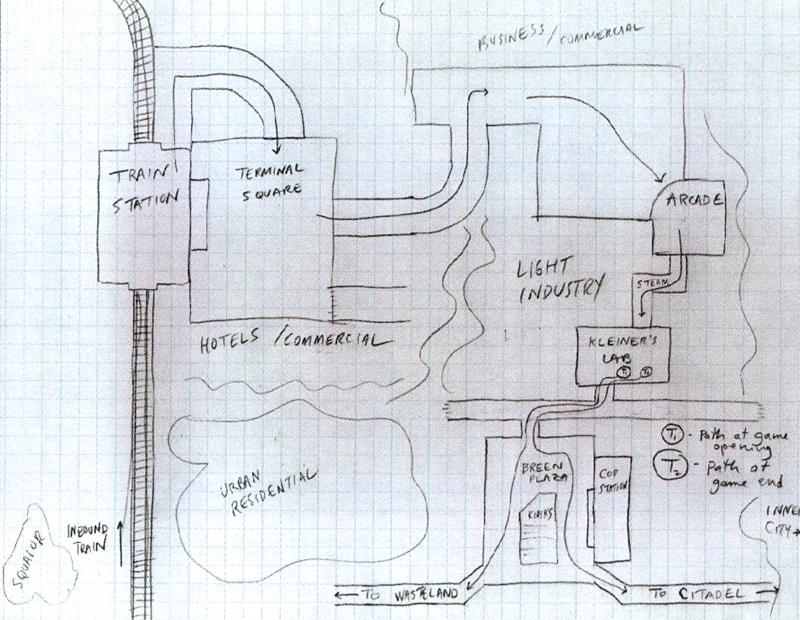 BUSINESS/COMMERCIAL
TRAIN
STATION
TERMINAL
SQUARE
ARCADE
LIGHT
INDUSTRY
STEAM
HOTELS/COMMERCIAL
KLEINER'S
LAB
T1 T2
T1 - Path at game
opening
T2 - Path at
game end
URBAN
RESIDENTIAL
BREEN
PLAZA
COP
STATION
KIOSKS
INNER
CITY→
INBOUND
TRAIN
SQUALOR
← TO WASTELAND
TO CITADEL →